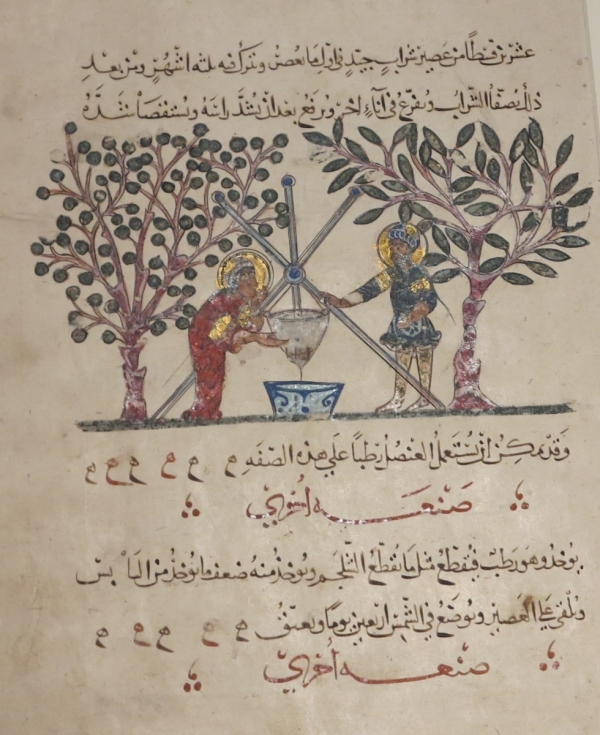 عشرين قسطا من عصير شراب جيد في اول ما يعصر ويترك فيه ثلثة اشهر ومن بعد
ذلك يصفا الشراب ويفرغ في اناء اخر ويرفع بعد ان يشد راسه ويستقصا شده
وقد يمكن ان يستعمل العنصل رطبا علي هذه الصفه
صنعه اخري
يوخذ وهو رطب فيقطع مثل ما يقطع الشلجم ويوخذ منه ضعف ما يوخذ من اليابس
ويلقي علي العصير ويوضع في الشمس اربعين يوما ويعتق
صنعه أخري